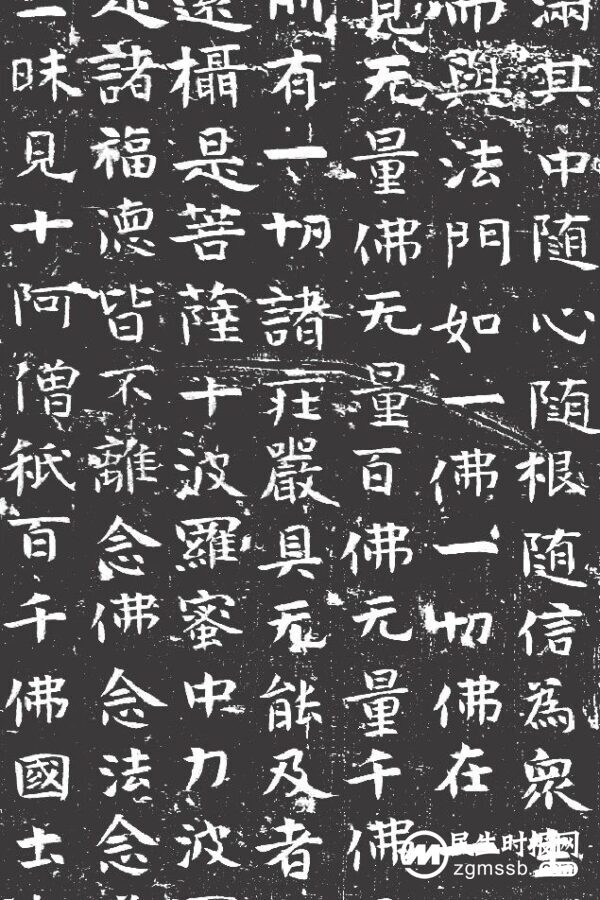 滿其中随心随根随信為衆生
而與法門如一佛一切佛在一
見无量佛无量百佛无量千佛
有一切諸莊嚴具无能及者
攝是菩薩十波羅蜜中力波
是諸福德皆不離念佛念法念
三昧見十阿僧祇百千佛國土
民生时报网
zgmssb.com